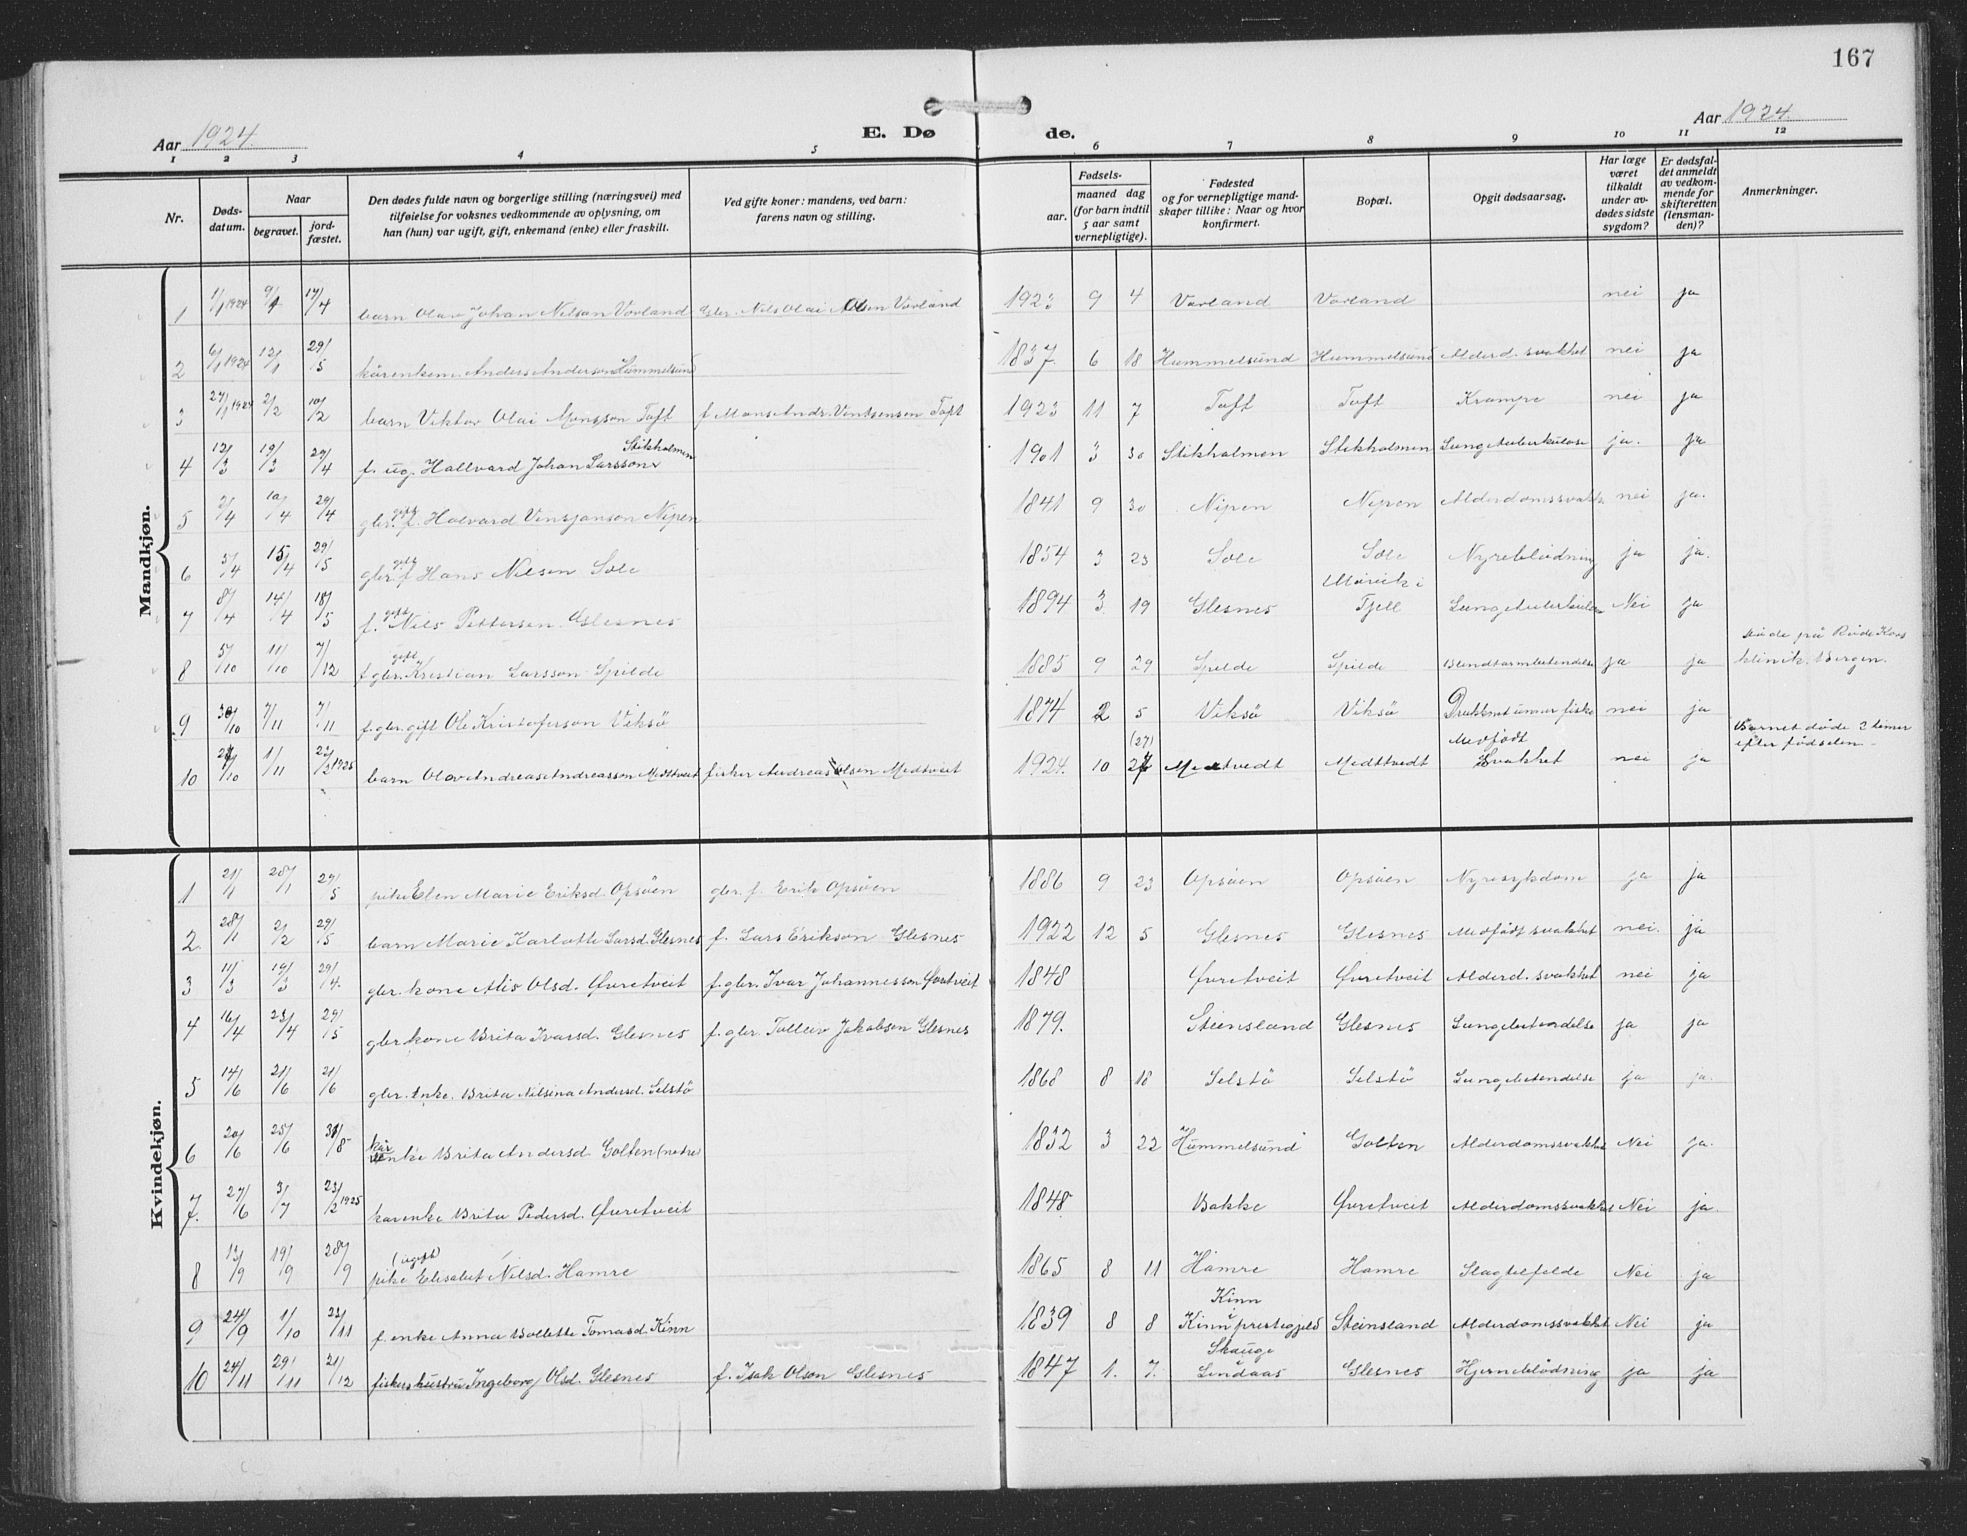 167
Aar 1924.
E. Dø
de.
Aar 1924.
1 2 3 4 5 6 7 8 9 10 11 12
Nr.
Døds-
datum.
Naar
begravet.
jord-
fæstet.
Den dødes fulde navn og borgerlige stilling (næringsvei) med
tilføielse for voksnes vedkommende av oplysning, om
han (hun) var ugift, gift, enkemand (enke) eller fraskilt.
Ved gifte koner: mandens, ved barn:
farens navn og stilling.
Fødsels-
aar.
maaned dag
(for barn indtil
5 aar samt
vernepligtige).
Fødested
og for vernepligtige mand-
skaper tillike: Naar og hvor
konfirmert.
Bopæl.
Opgit dødsaarsag.
Har læge
været
tilkaldt
under av-
dødes sidste
sygdom?
Er dødsfal-
det anmeldt
av vedkom-
mende for
skifteretten
(lensman-
den)?
Anmerkninger.
Mandkjøn.
1 1/1 1924 9/1 17/4 barn Olav Johan Nilsen Vorland Gbr. Nils Olai Olsen Vorland 1923 9 4 Vorland Vorland nei ja
2 6/1 1924 12/1 29/5 kårenkem. Anders Anderson Hummelsund 1837 6 18 Hummelsund Hummelsund Alderd. svakhet nei ja
3 27/1 1924 2/2 10/2 barn Viktor Olai Monsson Toft f. Mons Andr. Vintsensen Toft 1923 11 7 Toft Toft Krampe nei ja
Stikholmen
4 12/3 19/3 29/4 f. ug. Hallvard Johan Larsson 1901 3 30 Stikholmen Stikholmen Lungetuberkulose ja. ja
5 2/4 10/4 29/4 gbr. gift f. Halvard Vinsjanson Nipen 1841 9 30 Nipen Nipen Alderdomssvakh. nei ja.
6 5/4 15/4 29/5 gbr. gift f Hans Nilsen Sole 1854 3 23 Sole Sole Nyreblødning ja ja.
7 8/4 14/4 18/5 f. gift Nils Pettersen Glesnes 1894 3 19 Glesnes Fjell Lungetuberkulose Nei ja
8 5/10 11/10 7/12 f. gbr. gift Kristian Larsson Spilde 1885 9 29 Spilde Spilde Blindtarmbetendelse ja ja døde på Røde Kors
klinik, Bergen.
9 30/10 7/11 7/11 f. gbr. gift Ole Kristoferson Viksö 1874 2 5 Viksö Viksö Druknet under fiske nei ja
10 27/10 1/11 22/2 1925 barn Olav Andreas Andreassen Medtveit fisker Andreas Olsen Medtveit 1924. 10 (27) Medtvedt Medttvedt Medfödt
Svakhet nei ja Barnet døde 2 timer
efter fødselen
Kvindekjøn.
1 21/1 28/1 29/5 pike Elen Marie Eriksd. Opsöen gbr. f. Erik Opsöen 1886 9 23 Opsöen Opsöen Nyresykdom ja ja
2. 28/1 2/2 29/5 barn Marie Karlotte Larsd. Glesnes f. Lars Erikson Glesnes 1922 12 5 Glesnes Glesnes Medfödt svakhet nei. ja
3 11/3 19/3 29/4. gbr. kone Alis Olsd. Øvretveit f. gbr. Ivar Johannesson Øvretveit 1848 Øvretveit Øvretveit Alderd. svakhet nei ja
4 16/4 23/4 29/5 gbr kone Brita Ivarsd. Glesnes f. gbr Tollev Jakobson Glesnes 1879. Steinsland Glesnes Lungebetendelse ja ja
5 14/6 21/6 21/6 gbr. enke. Brita Nilsina Andersd. Selstö 1868 8 18 Selstö Selstö Lungebetendelse ja ja.
6 20/6 25/6 31/8 kår enke Brita Andersd. Golten (nedre) 1832 3 22 Hummelsund Golten Alderdomssvakhet Nei ja.
7. 27/6 3/7 23/2 1925 kårenke Brita Pedersd. Øvretveit 1848 Bakke Øvretveit Alderdomssvakhet Nei ja.
8 13/9 19/9 28/9 (ugift) pike Elisabet Nilsd. Hamre 1865 8 11 Hamre Hamre Slagtilfelde Nei ja
9 24/9 1/10 23/11 f. enke Anna Bollette Tomasd. Kinn 1839 8 8 Kinn
i
Kinn prestegjeld Steinsland Alderdomssvakhet Nei ja
10 24/11 29/11 21/12 fiskers hustru Ingeborg Olsd. Glesnes f. Isak Olson Glesnes 1847 1. 7. Skauge
i
Lindaas Glesnes Hjerneblødning ja ja